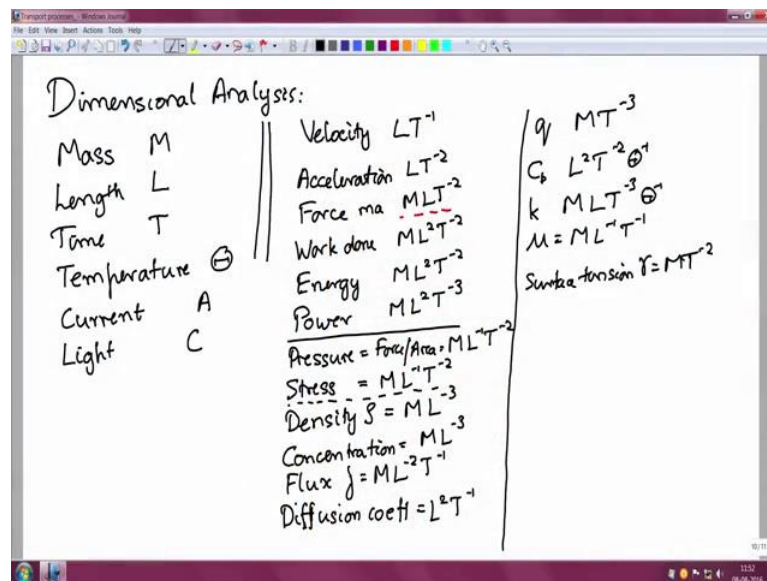 Transport processes_ - Windows Journal
File Edit View Insert Actions Tools Help
Dimensional Analysis:
Mass M
Length L
Time T
Temperature Θ
Current A
Light C
Velocity LT⁻¹
Acceleration LT⁻²
Force ma MLT⁻²
Work done ML²T⁻²
Energy ML²T⁻²
Power ML²T⁻³
Pressure = Force/Area = ML⁻¹T⁻²
Stress = ML⁻¹T⁻²
Density ρ = ML⁻³
Concentration = ML⁻³
Flux j = ML⁻²T⁻¹
Diffusion coeff = L²T⁻¹
q MT⁻³
Cp L²T⁻²Θ⁻¹
k MLT⁻³Θ⁻¹
μ = ML⁻¹T⁻¹
Surface tension γ = MT⁻²
10/11
11:52